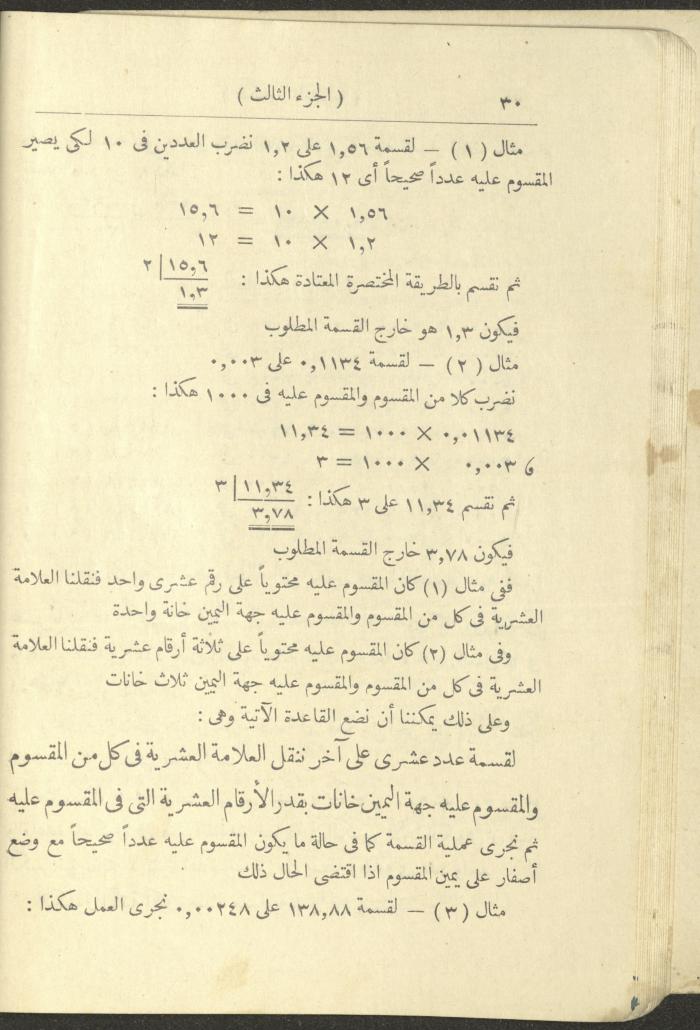 ٣٠
( الجزء الثالث )
مثال ( ١ ) — لقسمة ١,٥٦ على ١,٢ نضرب العددين فى ١٠ لكى يصير
المقسوم عليه عدداً صحيحاً أى ١٢ هكذا :
١,٥٦ × ١٠ = ١٥,٦
١,٢ × ١٠ = ١٢
ثم نقسم بالطريقة المختصرة المعتادة هكذا : ١٥,٦ | ٢
١,٣
فيكون ١,٣ هو خارج القسمة المطلوب
مثال ( ٢ ) — لقسمة ٠,١١٣٤ على ٠,٠٠٣
نضرب كلا من المقسوم والمقسوم عليه فى ١٠٠٠ هكذا :
٠,٠١١٣٤ × ١٠٠٠ = ١١,٣٤
و ٠,٠٠٣ × ١٠٠٠ = ٣
ثم نقسم ١١,٣٤ على ٣ هكذا : ١١,٣٤ | ٣
٣,٧٨
فيكون ٣,٧٨ خارج القسمة المطلوب
ففى مثال (١) كان المقسوم عليه محتوياً على رقم عشرى واحد فنقلنا العلامة
العشرية فى كل من المقسوم والمقسوم عليه جهة اليمين خانة واحدة
وفى مثال (٢) كان المقسوم عليه محتوياً على ثلاثة أرقام عشرية فنقلنا العلامة
العشرية فى كل من المقسوم والمقسوم عليه جهة اليمين ثلاث خانات
وعلى ذلك يمكننا أن نضع القاعدة الآتية وهى :
لقسمة عدد عشرى على آخر ننقل العلامة العشرية فى كل من المقسوم
والمقسوم عليه جهة اليمين خانات بقدر الأرقام العشرية التى فى المقسوم عليه
ثم نجرى عملية القسمة كما فى حالة ما يكون المقسوم عليه عدداً صحيحاً مع وضع
أصفار على يمين المقسوم اذا اقتضى الحال ذلك
مثال ( ٣ ) — لقسمة ١٣٨,٨٨ على ٠,٠٠٢٤٨ نجرى العمل هكذا :